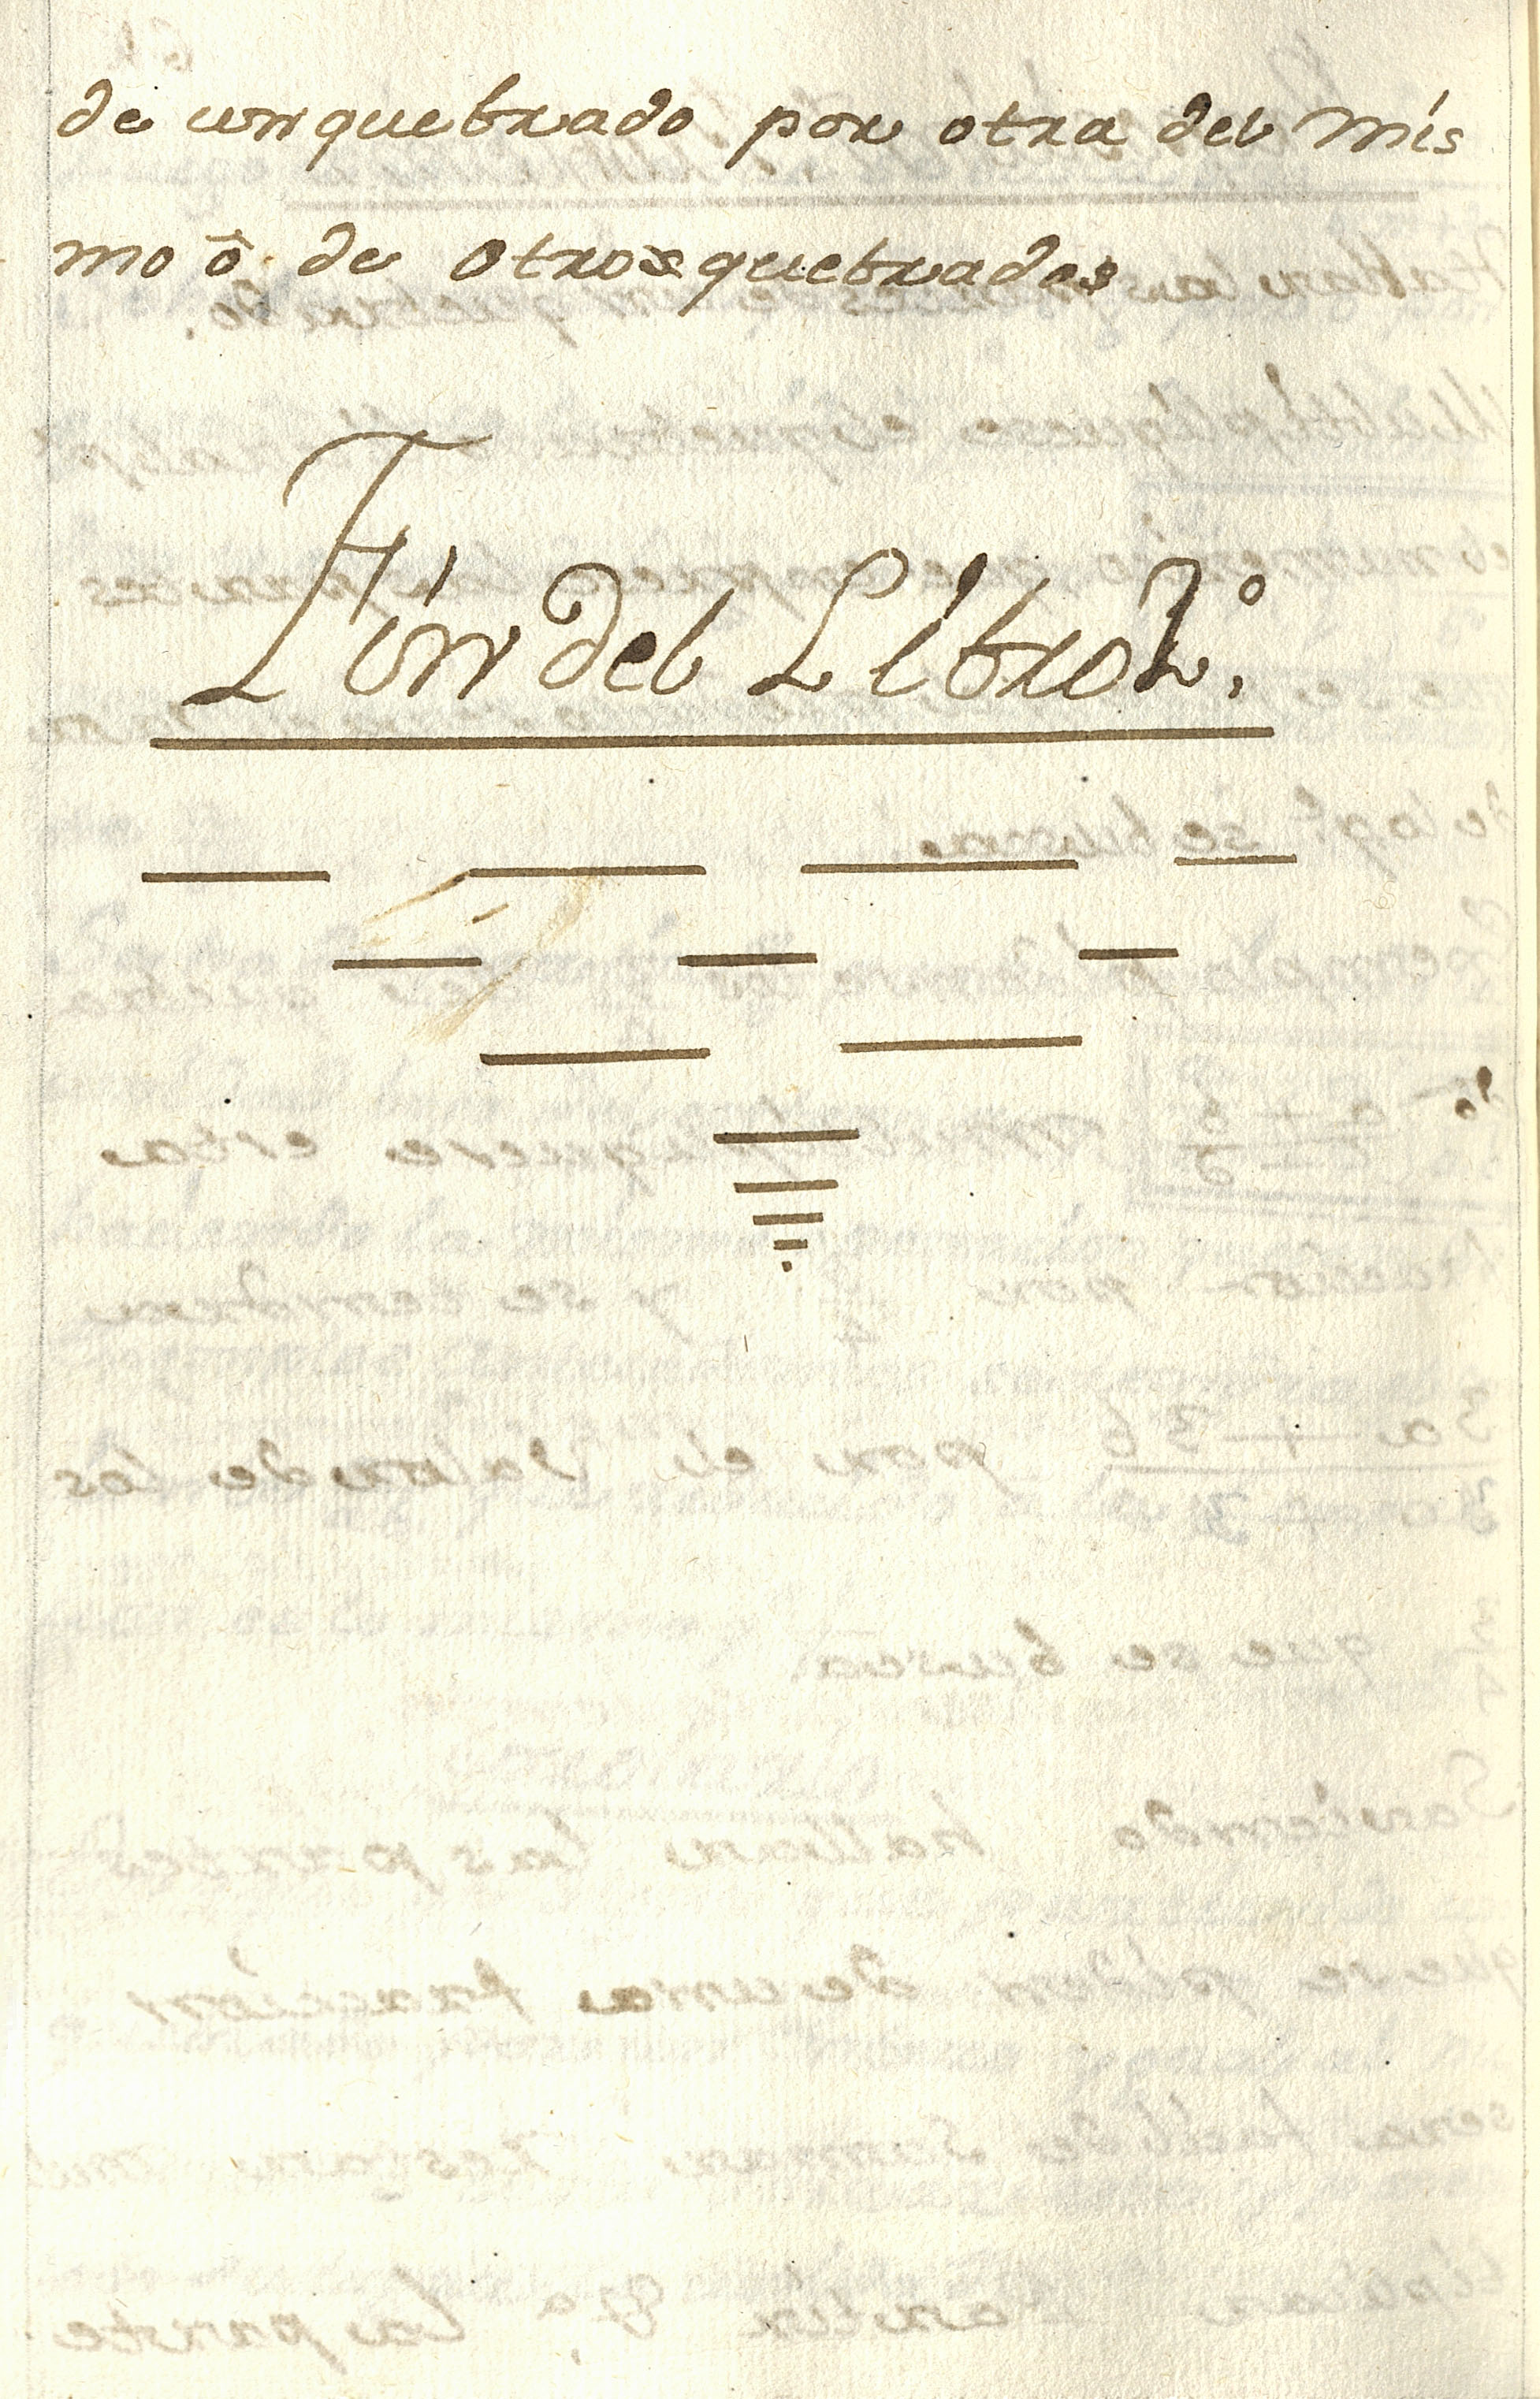 de un quebrado por otra del mis
mo ô de otros quebrados
Fin del Libro 2.º